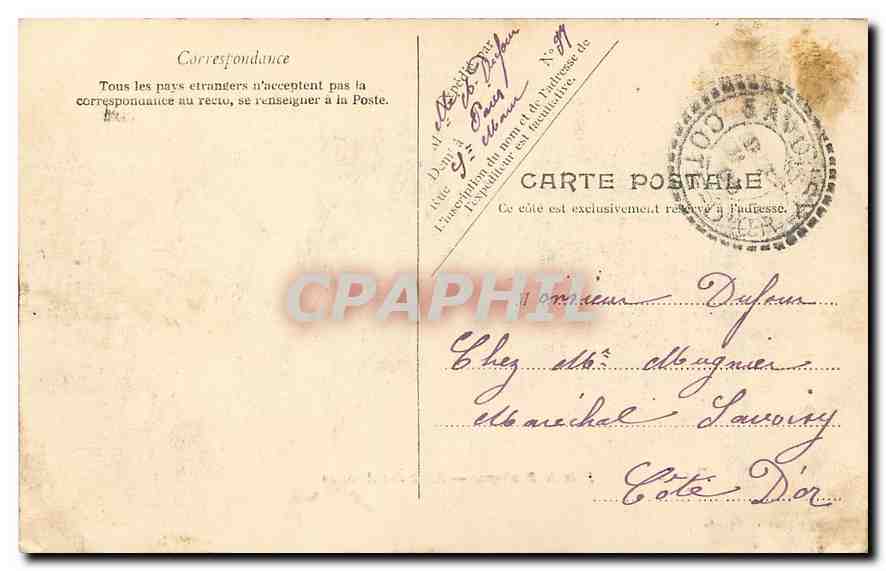 Correspondance
Tous les pays etrangers n'acceptent pas la
correspondance au recto, se renseigner à la Poste.
Expédié par
M Dufour
Demt à Paris
Rue Ste Marie N°
L'inscription du nom et de l'adresse de
l'expéditeur est facultative.
SAVOISY
COTE-D'OR
CARTE POSTALE
Ce côté est exclusivement réservé à l'adresse.
CPAPHIL
Monsieur Dufour
Chez Mr Mugnier
Maréchal Savoisy
Côte D'or